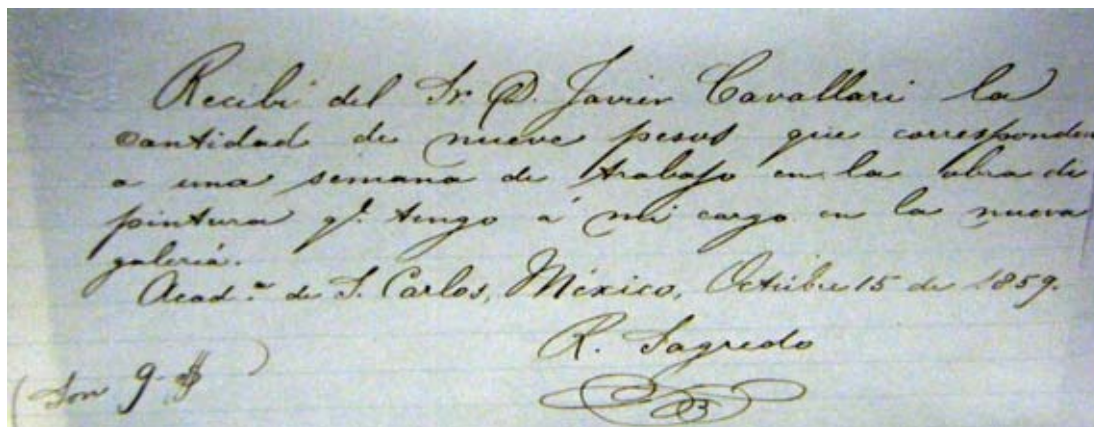 Recibí del Sr. D. Javier Cavallari la
cantidad de nueve pesos que corresponden
a una semana de trabajo en la obra de
pintura q.e tengo á mi cargo en la nueva
galería.
Acad.a de S. Carlos, México, Octubre 15 de 1859.
R. Sagredo
(Son 9. $)